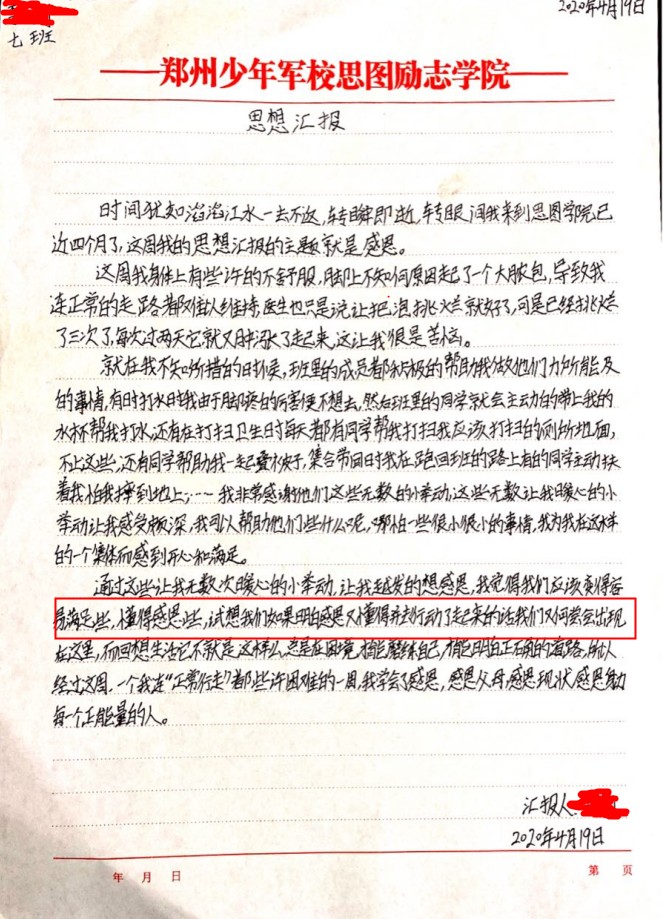 2020年4月19日
七班
郑州少年军校思图励志学院
思想汇报
时间犹如滔滔江水一去不返,转瞬即逝,转眼间我来到思图学院已
近四个月了,这周我的思想汇报的主题就是感恩。
这周我身体上有些许的不舒服,脚上不知何原因起了一个大脓包,导致我
连正常的走路都难以维持,医生也只是说让把泡挑烂就好了,可是已经挑烂
了三次了,每次过两天它就又肿涨了起来,这让我很是苦恼。
就在我不知所措的时侯,班里的成员都积极的帮助我做他们力所能及
的事情,有时打水时我由于脚疼的厉害便不想去,然后班里的同学就会主动的带上我的
水杯帮我打水,还有在打扫卫生时每天都有同学帮我打扫我应该打扫的厕所地面,
不止这些,还有同学帮助我一起叠被子,集合带回时我在跑回班的路上有的同学主动扶
着我怕我摔到地上;……我非常感谢他们这些无数的小举动,这些无数让我暖心的小
举动让我感受颇深,我可以帮助他们些什么呢,哪怕一些很小很小的事情,我为我在这样
的一个集体而感到开心和满足。
通过这些让我无数次暖心的小举动,让我越发的想感恩,我觉得我们应该变得容
易满足些,懂得感恩些,试想我们如果明白感恩又懂得并行动了起来的话我们又何尝会出现
在这里,而回想生活它不就是这样么,总是在困境才能磨练自己,才能明白正确的道路,所以
经过这周,一个我连“正常行走”都些许困难的一周,我学会了感恩,感恩父母,感恩现状,感恩身边
每个正能量的人。
汇报人:
2020年4月19日
年 月 日
第 页